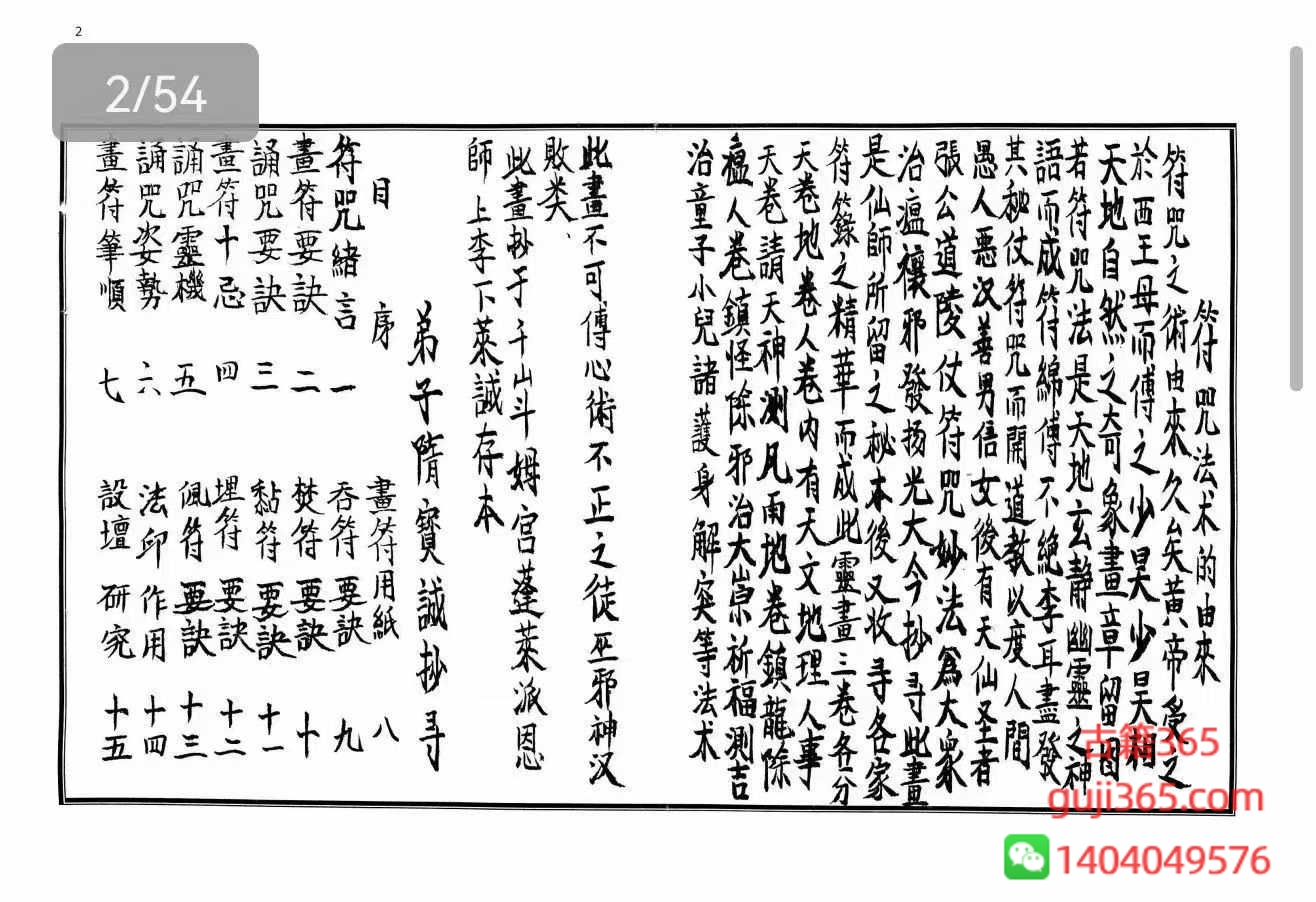 2
2/54
符咒法术的由來
符咒之術由來久矣黃帝受之
於西王母而傅之少昊少昊相
天地自然之奇象畫章留因
若符咒法是天地玄静幽靈之神
語而成符綿傅不絶李耳盡發
其秘仗符咒而開道教以度人間
愚人惡汉善男信女後有天仙圣者
張公道陵仗符咒妙法為大衆
治瘟禳邪發扬光大今抄寻此畫
是仙師所留之秘本後又收寻各家
符籙之精華而成此靈畫三卷各分
天卷地卷人卷内有天文地理人事
天卷請天神測凡雨地卷鎮龍除
瘟人卷鎮怪除邪治大崇祈福測吉
治童子小兒諸護身解突等法术
此畫不可傅心術不正之徒巫邪神汉
敗类、
此畫抄于千山斗姆宫蓬萊派恩
師上李下萊誠存本
弟子隋寶誠抄寻
目 序
符咒緒言 一
畫符要訣 二
誦咒要訣 三
畫符十忌 四
誦咒靈機 五
誦咒姿勢 六
畫符筆順 七
畫符用紙 八
吞符要訣 九
焚符要訣 十
黏符要訣 十一
埋符要訣 十二
佩符要訣 十三
法印作用 十四
設壇研究 十五
古籍365
guji365.com
1404049576